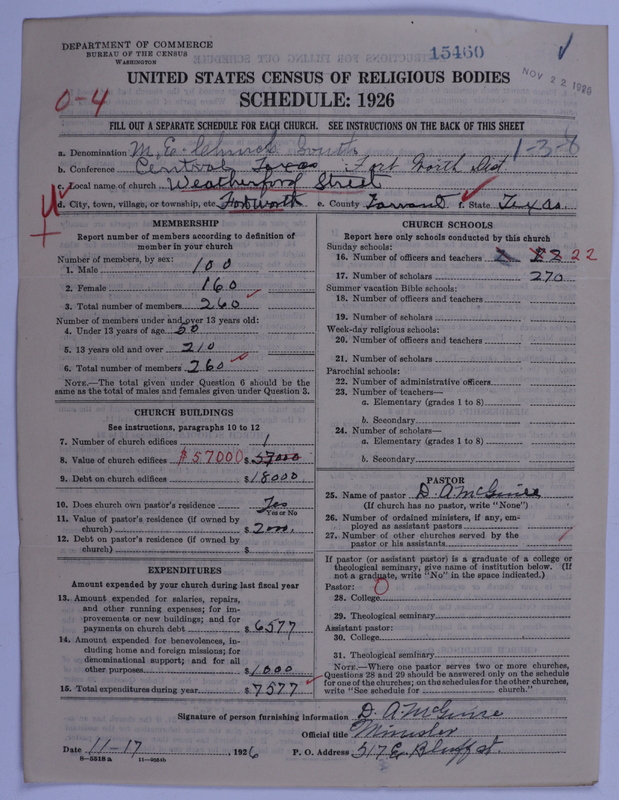 DEPARTMENT OF COMMERCE
BUREAU OF THE CENSUS
WASHINGTON
15460
NOV 22 1926
UNITED STATES CENSUS OF RELIGIOUS BODIES
0-4
SCHEDULE: 1926
FILL OUT A SEPARATE SCHEDULE FOR EACH CHURCH. SEE INSTRUCTIONS ON THE BACK OF THIS SHEET
a. Denomination M. E. Church South 1-3-8
b. Conference Central Texas Fort Worth Dist
c. Local name of church Weatherford Street
d. City, town, village, or township, etc. Fortworth e. County Tarrant f. State Texas.
MEMBERSHIP
Report number of members according to definition of
member in your church
Number of members, by sex:
1. Male 100
2. Female 160
3. Total number of members 260
Number of members under and over 13 years old:
4. Under 13 years of age 50
5. 13 years old and over 210
6. Total number of members 260
NOTE.—The total given under Question 6 should be the
same as the total of males and females given under Question 3.
CHURCH BUILDINGS
See instructions, paragraphs 10 to 12
7. Number of church edifices 1
8. Value of church edifices $57000 $ 57000
9. Debt on church edifices $ 18000
10. Does church own pastor's residence Yes
Yes or No
11. Value of pastor's residence (if owned by
church) $ 2000
12. Debt on pastor's residence (if owned by
church) $
EXPENDITURES
Amount expended by your church during last fiscal year
13. Amount expended for salaries, repairs,
and other running expenses; for im-
provements or new buildings; and for
payments on church debt $ 6577
14. Amount expended for benevolences, in-
cluding home and foreign missions; for
denominational support; and for all
other purposes $ 1000
15. Total expenditures during year $ 7577
CHURCH SCHOOLS
Report here only schools conducted by this church
Sunday schools:
16. Number of officers and teachers 22 22
17. Number of scholars 270
Summer vacation Bible schools:
18. Number of officers and teachers
19. Number of scholars
Week-day religious schools:
20. Number of officers and teachers
21. Number of scholars
Parochial schools:
22. Number of administrative officers
23. Number of teachers—
a. Elementary (grades 1 to 8)
b. Secondary
24. Number of scholars—
a. Elementary (grades 1 to 8)
b. Secondary
PASTOR
25. Name of pastor D. A McGuire
(If church has no pastor, write "None")
26. Number of ordained ministers, if any, em-
ployed as assistant pastors
27. Number of other churches served by the
pastor or his assistants
If pastor (or assistant pastor) is a graduate of a college or
theological seminary, give name of institution below. (If
not a graduate, write "No" in the space indicated.)
Pastor: 0
28. College
29. Theological seminary
Assistant pastor:
30. College
31. Theological seminary
NOTE.—Where one pastor serves two or more churches,
Questions 28 and 29 should be answered only on the schedule
for one of the churches; on the schedules for the other churches,
write "See schedule for church."
Signature of person furnishing information D. A McGuire
Official title Minister
Date 11-17, 1926 P. O. Address 317 E. Bluff st.
8-5518 a 11-9264b